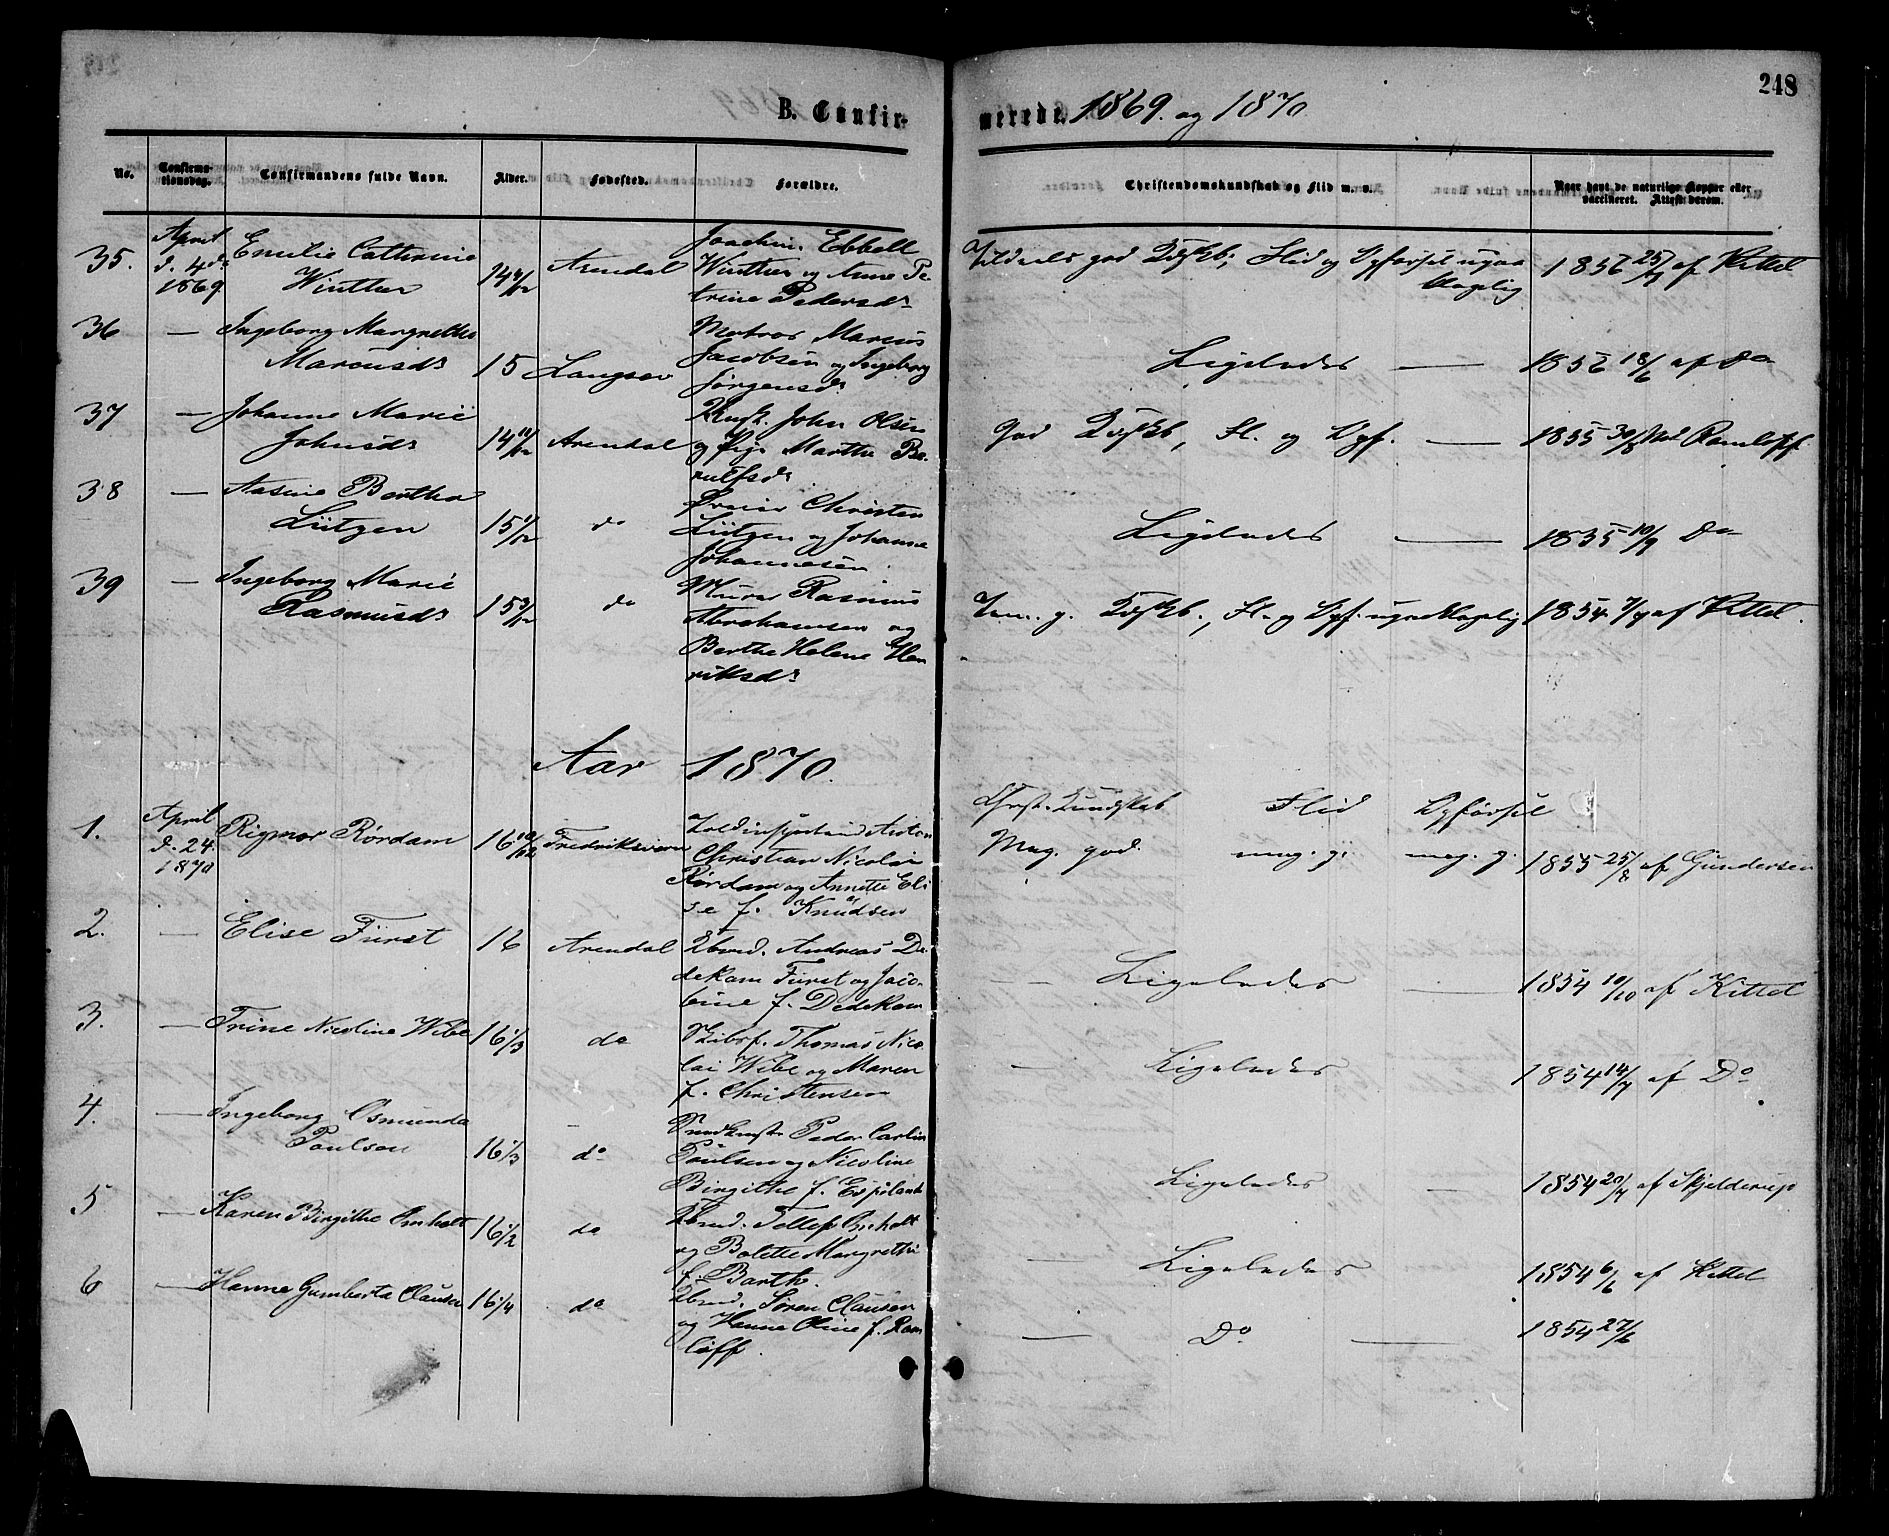 248
B. Confirmerede. 1869. og 1870.
No. Confirmationsdag. Confirmandens fulde Navn. Alder. Fødested. Forældre. Christendomskundskab og Flid m. v. Naar havt de naturlige Kopper eller vaccineret. Attest derom.
35. April d. 4de 1869 Emilie Cathrine Winther 14 Arendal Joachim Ebbell Winther og Anne Petrine Pedersdr Kdskb; Flid og Opførsel ugaa klagelig 1856 25/9 af Kittel
36 — Ingeborg Margrethe Marcusdr 15 Langsæv Matros Marcus Jacobsen og Ingeborg Jørgensdr Ligeledes — 1856 18/6 af Do
37 — Johanne Marie Johnsdr 14 11/12 Arendal John Olsen og Pige Marthe Berulfsdr God Kdskb, Fl. og Opf. — 1855 30/8 Ramloff
38 — Aasine Bertha Lützen 15 1/12 do Dreier Christen Lützen og Johanne Johannesen Ligeledes — 1855 10/9 Do
39 — Ingeborg Marie Rasmusdr 15 9/12 do Murer Rasmus Abrahamsen og Berthe Helene Henriksdr Tem. g. Kdskb., Fl. og Opf. ugaaklagelig 1854 7/9 af Kittel.
Aar 1870.
Chrst. Kundskab Flid Opførsel
1. April d. 24. 1870 Rigmor Rørdam 16 10/12 Fredriksværn Toldinspectør Anton Christian Nicolai Rørdam og Annette Elise f. Knudsen Meg. god. meg. g. meg. g. 1855 25/8 af Gundersen
2. — Elise Fürst 16 Arendal Kbmd. Andreas Dedekam Fürst og Jacobine f. Dedekam — Ligeledes — 1854 10/10 af Kittel
3. — Trine Nicoline Wibe 16 1/3 do Skibsf. Thomas Nicolai Wibe og Maren f. Christensen — Ligeledes 1854 14/7 af Do
4. — Ingeborg Osmunda Poulsen 16 1/3 do Peder Carlin Poulsen og Nicoline Birgithe f. Espeland Ligeledes — 1854 20/7 af Skjelderup
5 — Karen Birgithe Omholt 16 1/2 do Kbmd. Tellef Omholt og Bolette Margrethe f. Barth. — Ligeledes 1854 6/6 af Kittel
6 — Hanne Gumberta Clausen 16 1/4 do Kbmd. Søren Clausen og Hanne Oline f. Ramløff. — Do — 1854 27/6